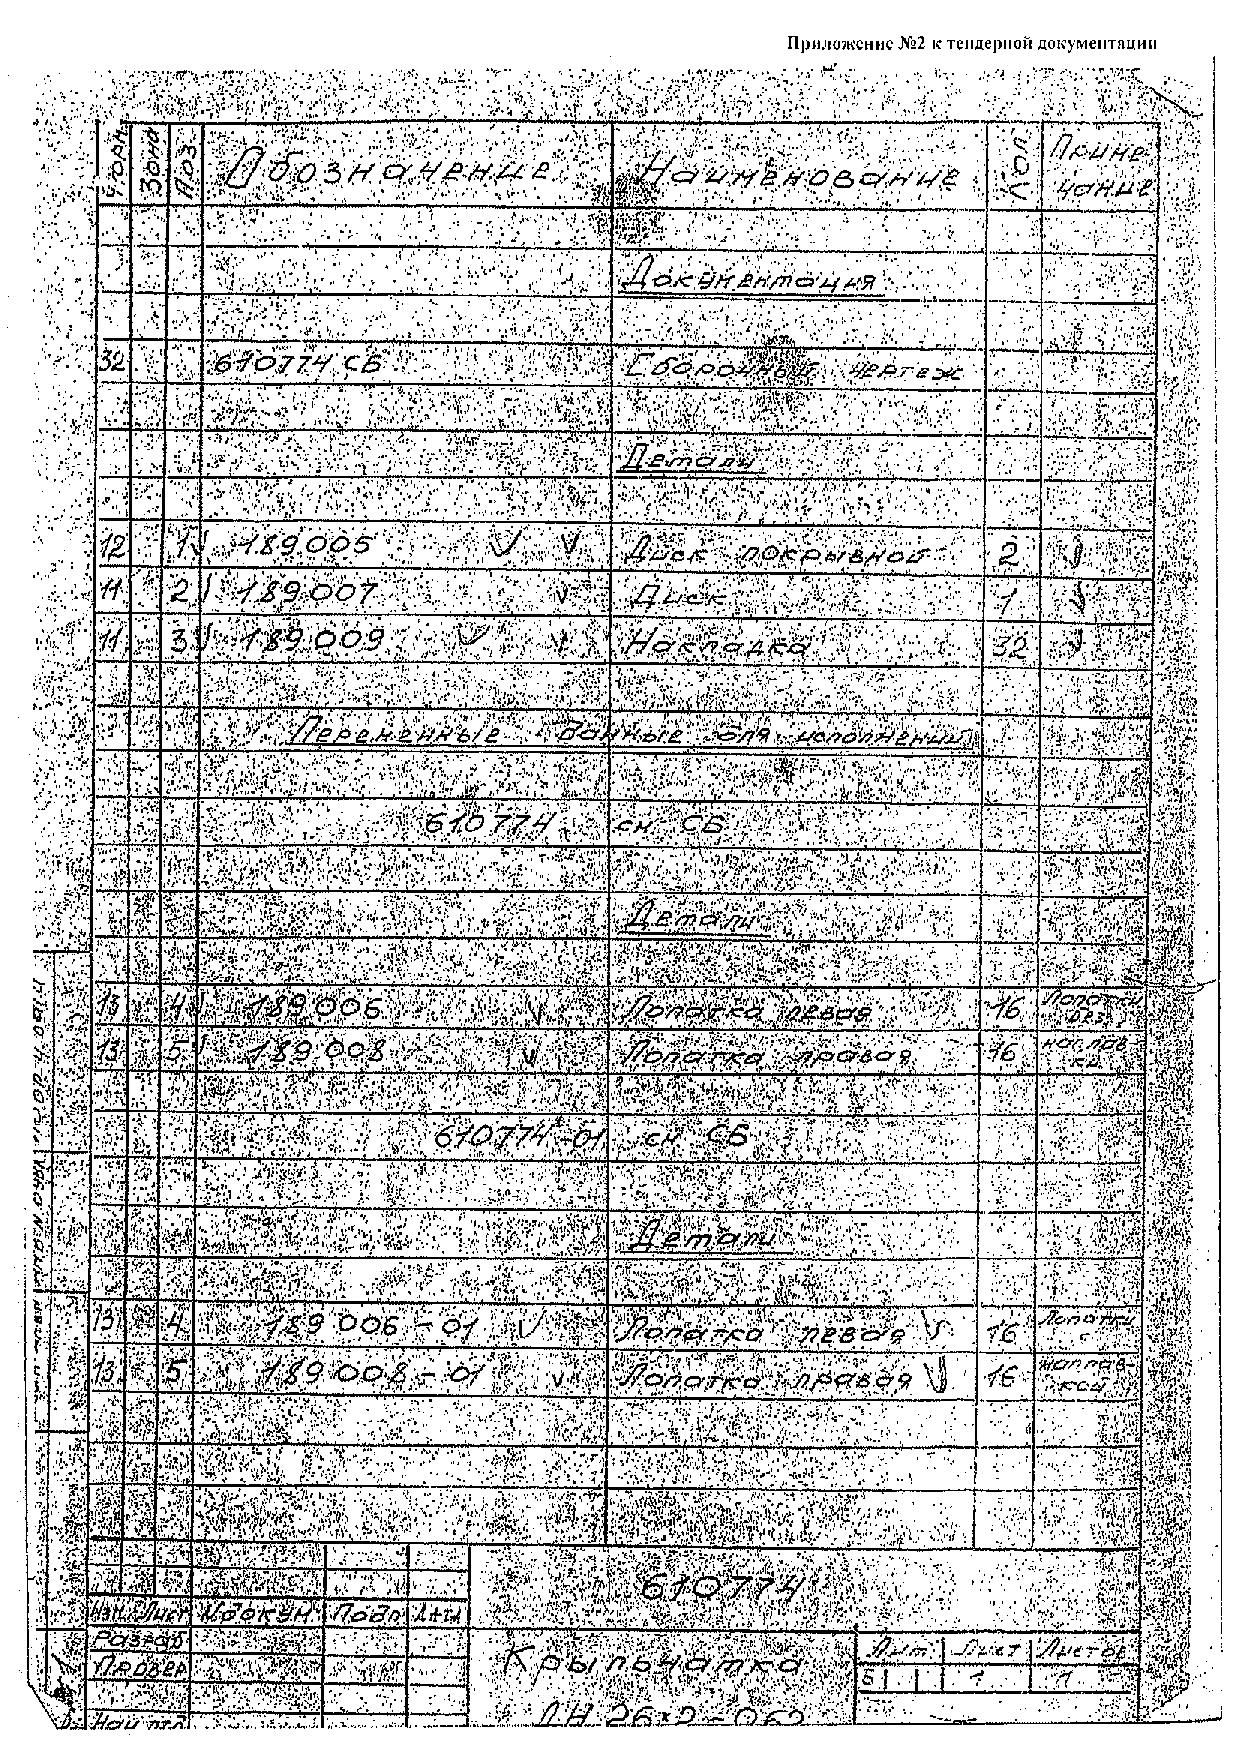 Приложение №2 к тендерной документации
Форм. Зона Поз. Обозначение Наименование Кол. Приме
чание
Документация
32 610774 СБ Сборочный чертеж
Детали
12 1 189.005 Диск покрывной 2
11 2 189.007 Диск 1
11 3 189.009 Накладка 32
Переменные данные для исполнений
610774 см СБ
Детали
13 4 189.006 Лопатка левая 16 Лопатки
без
13 5 189.008 Лопатка правая 16 наплав-
ки
610774-01 см СБ
Детали
13 4 189.006-01 Лопатка левая 16 Лопатки
с
13 5 189.008-01 Лопатка правая 16 наплав-
кой
610774
Изм. Лист № докум Подп Дата
Разраб
Провер
Крыльчатка
Лит Лист Листов
Б 1 1
Нач отд ДН 26×2-062